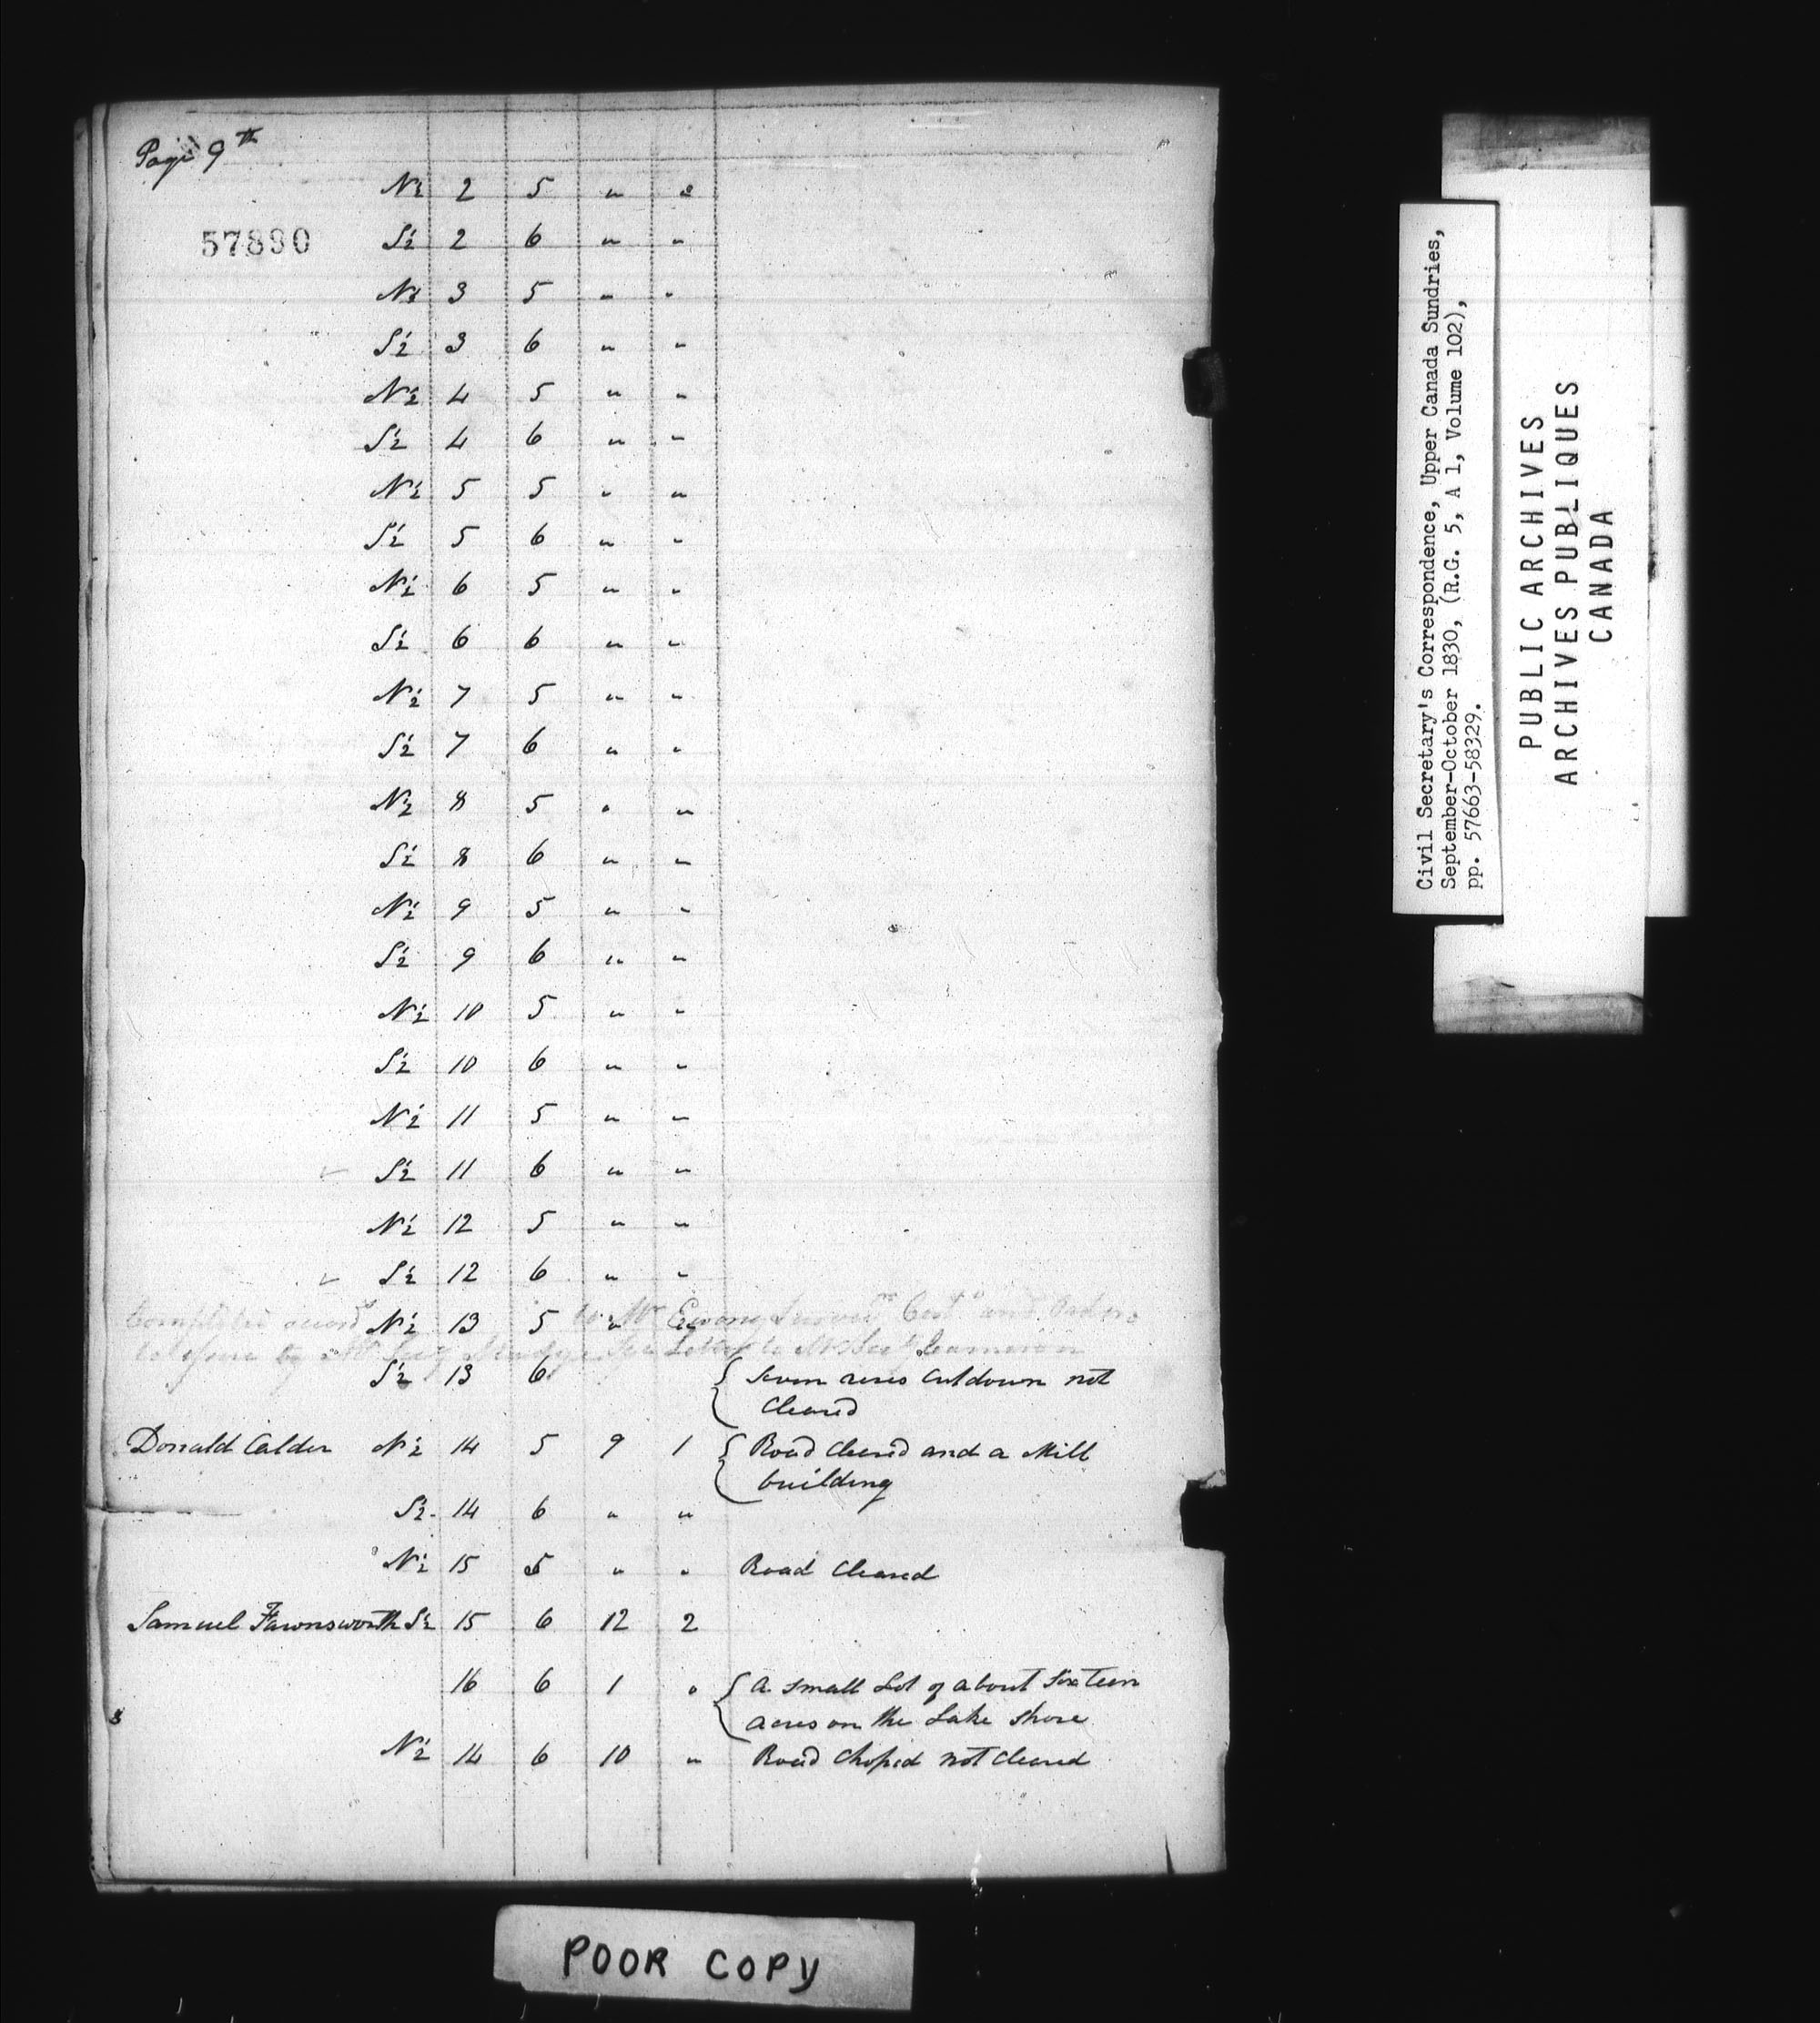 Page 9th
N½ 2 5 " "
57890
S½ 2 6 " "
N½ 3 5 " "
S½ 3 6 " "
N½ 4 5 " "
S½ 4 6 " "
N½ 5 5 " "
S½ 5 6 " "
N½ 6 5 " "
S½ 6 6 " "
N½ 7 5 " "
S½ 7 6 " "
N½ 8 5 " "
S½ 8 6 " "
N½ 9 5 " "
S½ 9 6 " "
N½ 10 5 " "
S½ 10 6 " "
N½ 11 5 " "
S½ 11 6 " "
N½ 12 5 " "
S½ 12 6 " "
Completed to Mr Ewing and
N½ 13 5 "
by Mr See Letter to Mr Cameron
S½ 13 6 Seven acres cut down not
Cleared
Donald Calder N½ 14 5 9 1 Road Cleared and a Mill
building
S½ 14 6 " "
N½ 15 5 " " Road Cleared
Samuel Farnsworth S½ 15 6 12 2
16 6 1 " A small Lot of about Sixteen
acres on the Lake Shore
N½ 14 6 10 " Road Choped not Cleared
Civil Secretary's Correspondence, Upper Canada Sundries,
September-October 1830, (R.G. 5, A 1, Volume 102),
pp. 57663-58329.
PUBLIC ARCHIVES
ARCHIVES PUBLIQUES
CANADA
POOR COPY